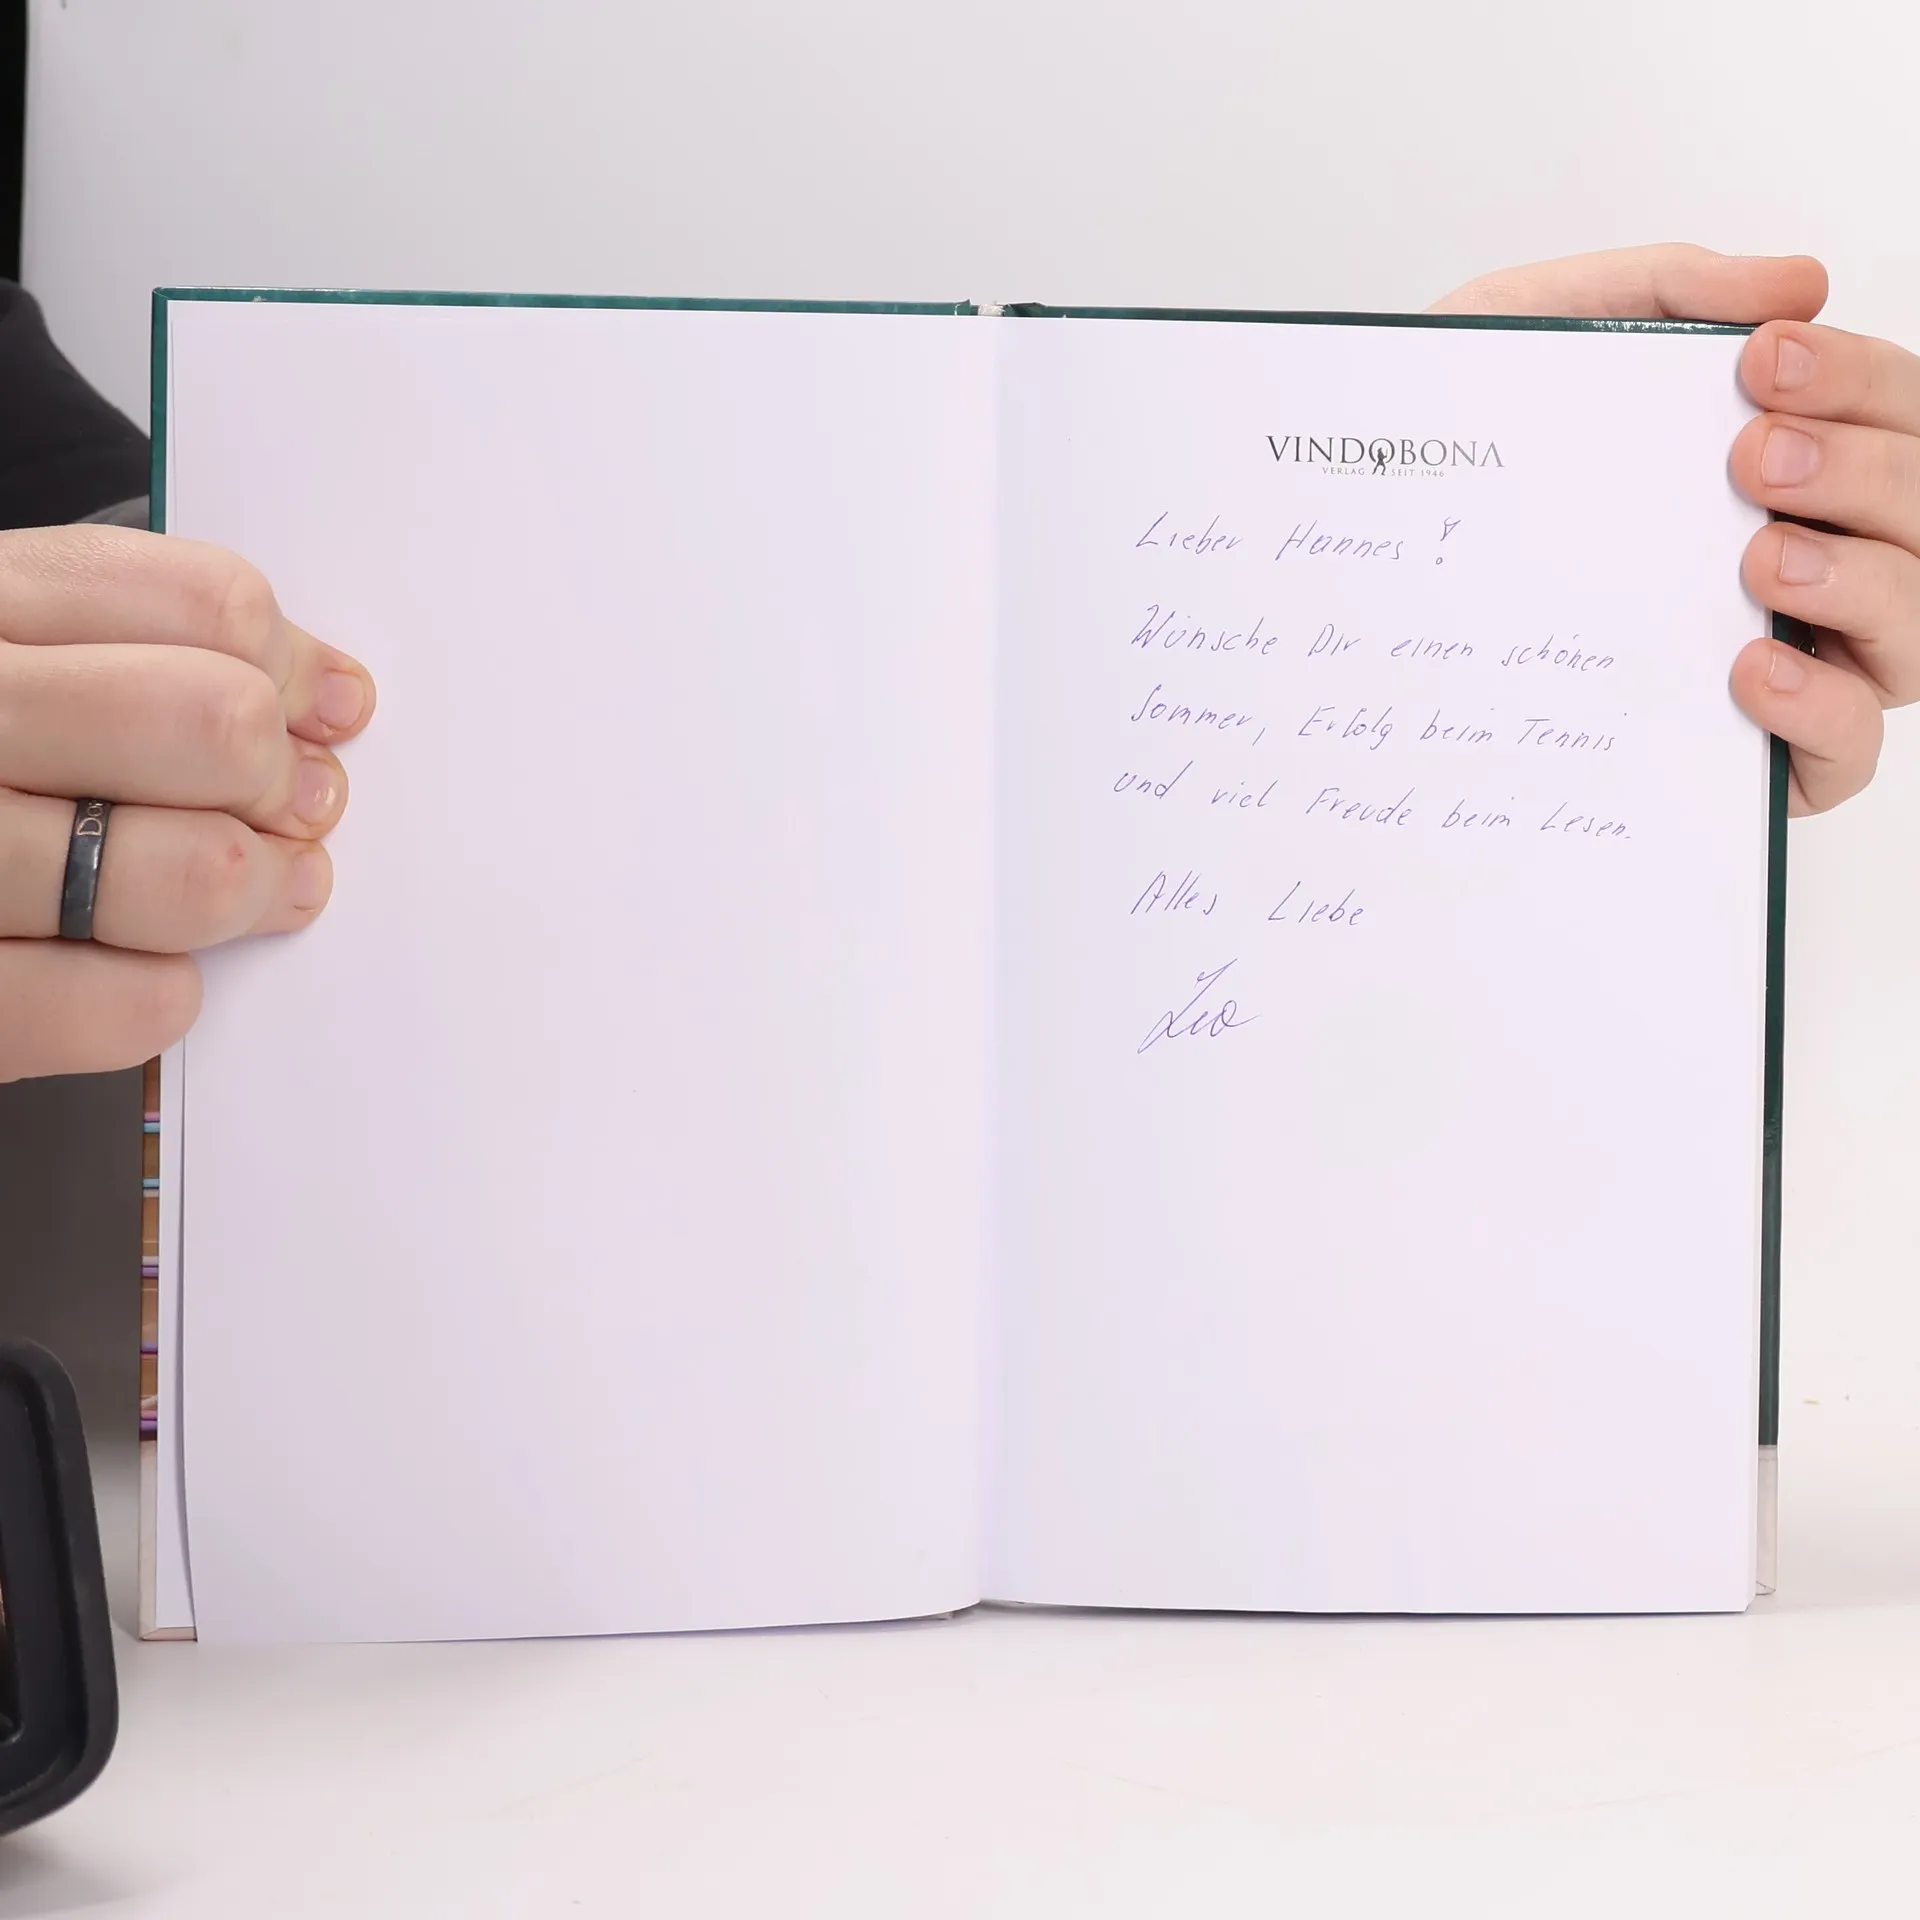 VINDOBONA
VERLAG SEIT 1946
Lieber Hannes!
Wünsche Dir einen schönen
Sommer, Erfolg beim Tennis
und viel Freude beim Lesen.
Alles Liebe
Leo